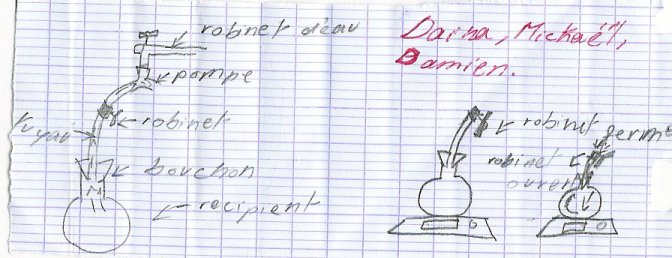 robinet d'eau
pompe
robinet
tuyau
bouchon
recipient
Darna, Mickaël,
Damien.
robinet fermé
robinet
ouvert